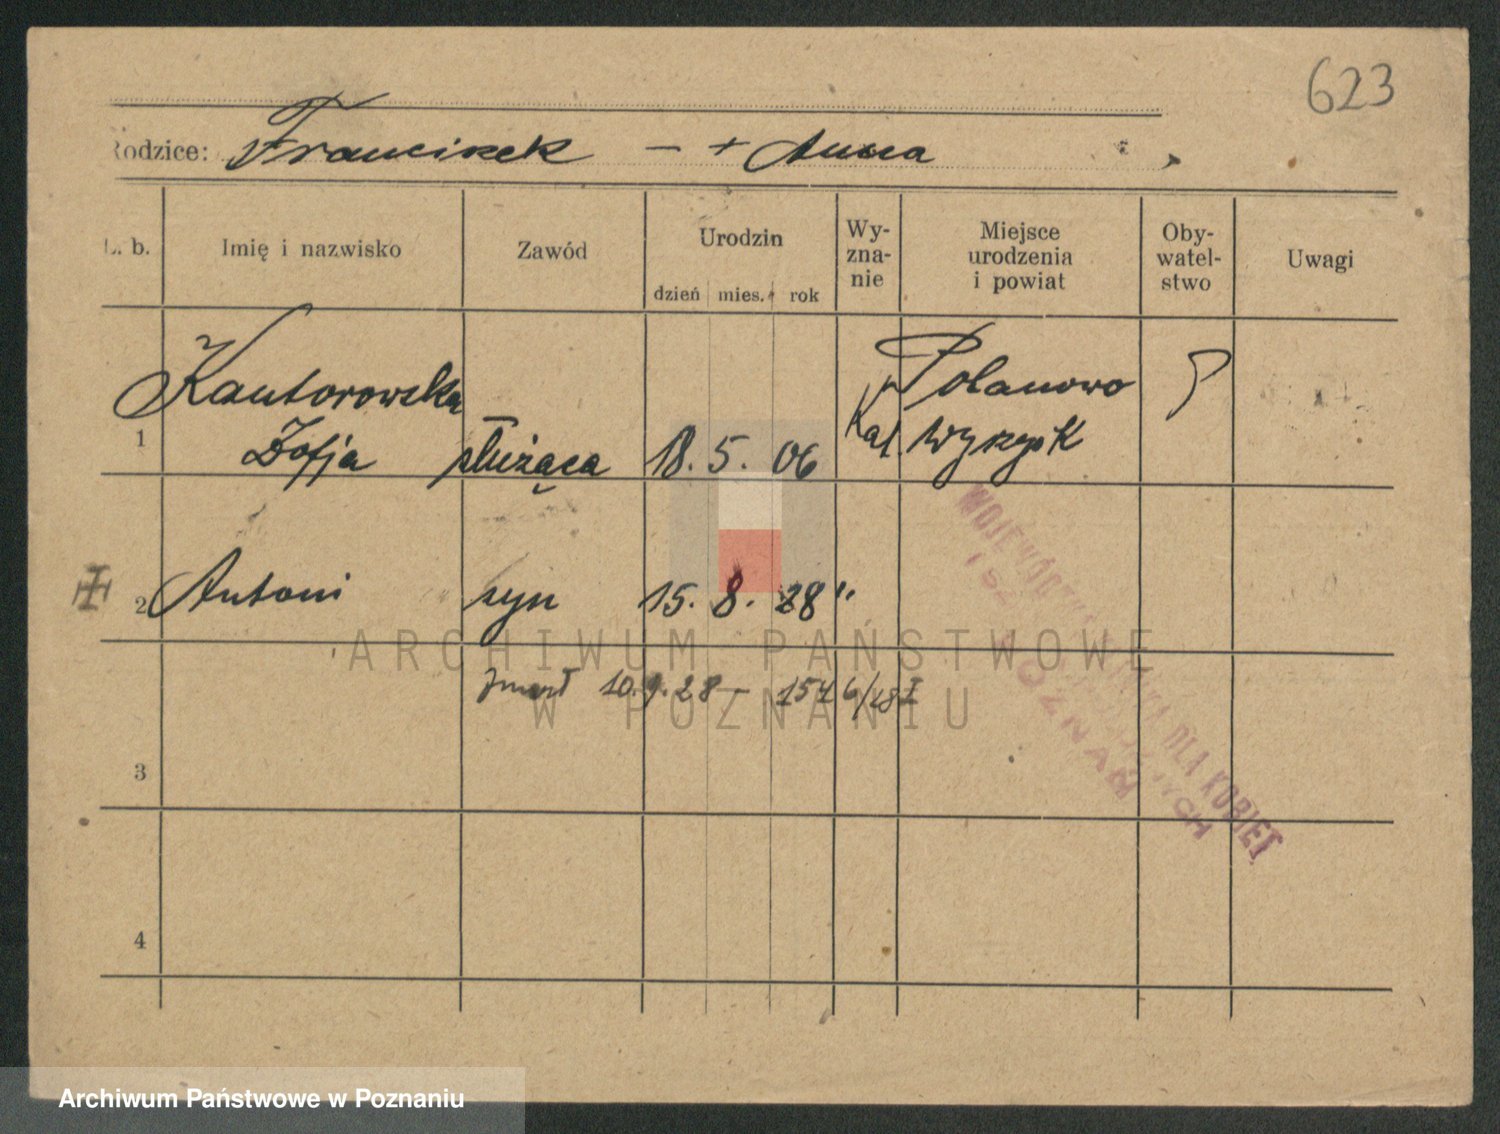 623
Rodzice: Franciszek — + Anna
L. b. Imię i nazwisko Zawód Urodzin dzień mies. rok Wy-zna-nie Miejsce urodzenia i powiat Oby-watel-stwo Uwagi
Kantorowska Polanowo P
1 Zofja służąca 18. 5. 06 Kat. Wyrzysk
2 Antoni syn 15. 8. 28 "
zmarł 10.9.28 – 1546/28 I
3
4
WOJEWÓDZKA DLA KOBIET
POZNAŃ
ARCHIWUM PAŃSTWOWE
W POZNANIU
Archiwum Państwowe w Poznaniu